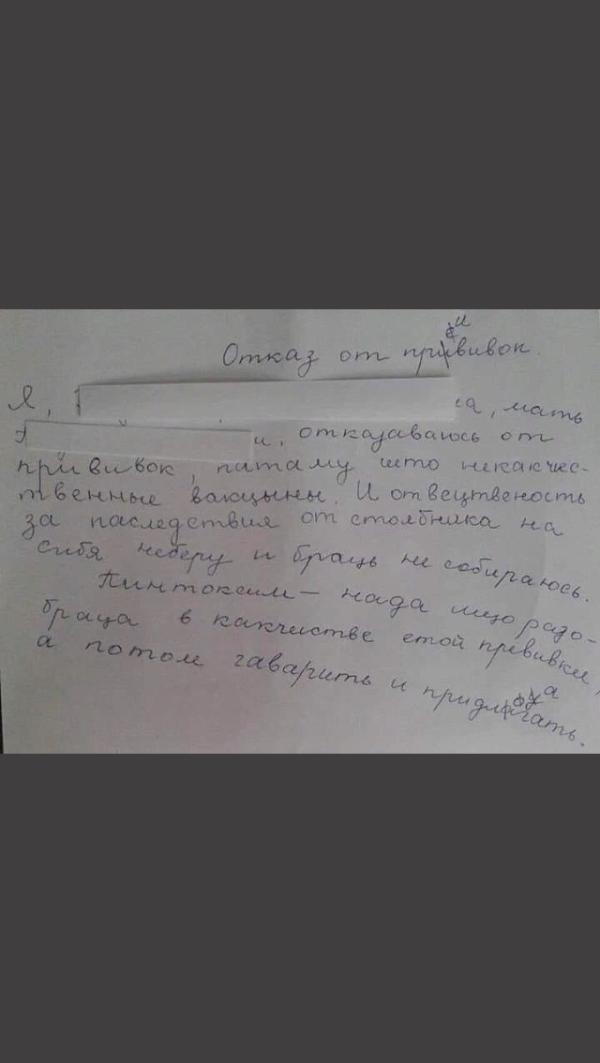 Отказ от прививок.
Я, са, мать
и, отказаваюсь от
прививок, патаму што некакчес-
твенные вакцыны. И отвецтвеность
за паследствия от столбника на
сибя неберу и браць не собираюсь.
Пинтоксим – нада ищо разо-
браца в какчистве етой превивки,
а потом гаварить и придлагать.